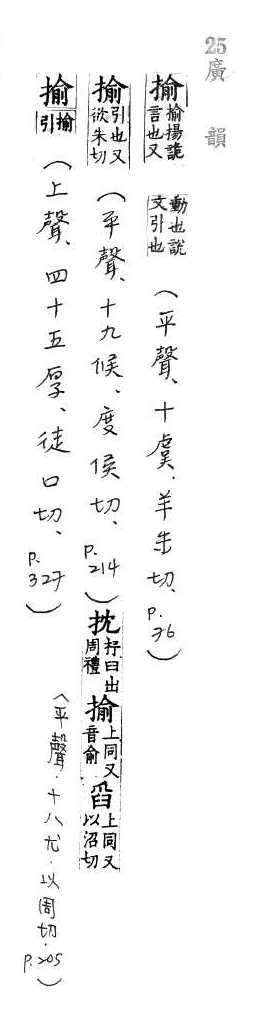 25廣韻
揄揄揚詭言也又動也說文引也（平聲、十虞．羊朱切、P.76）
揄引也又欲朱切（平聲、十九候、度侯切、P.214）
㧋抒臼出周禮揄上同又音俞舀上同又以沼切
（平聲．十八尤．以周切．P.205）
揄揄引（上聲、四十五厚、徒口切、P.327）